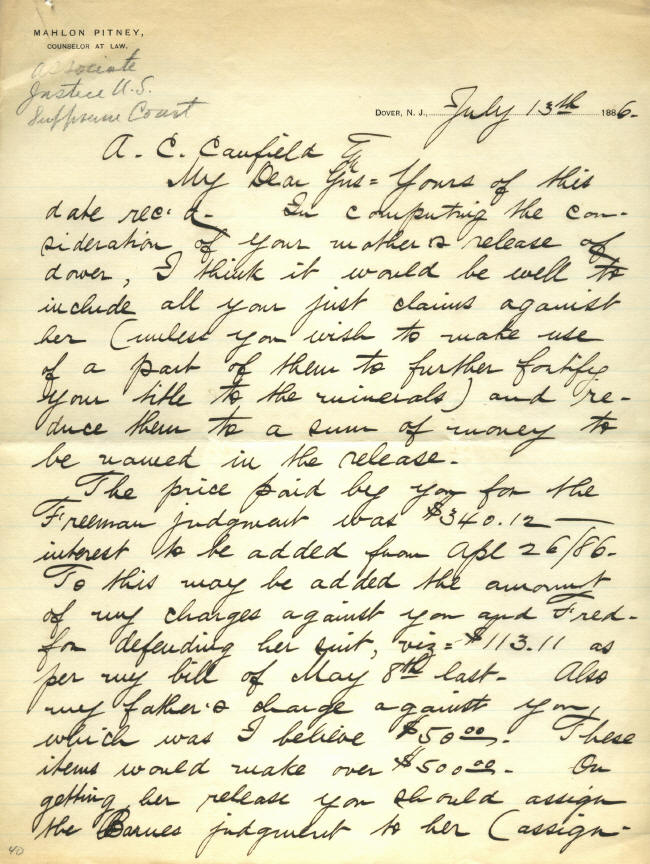 MAHLON PITNEY,
COUNSELOR AT LAW,
Associate
Justice U.S.
Suppreme Court
DOVER, N. J., July 13th 1886.
A. C. Canfield
My Dear Gus = Yours of this
date rec'd. In computing the con-
sideration of your mother's release of
dower, I think it would be well to
include all your just claims against
her (unless you wish to make use
of a part of them to further fortify
your title to the minerals) and re-
duce them to a sum of money to
be named in the release.
The price paid by you for the
Freeman judgment was $340.12 —
interest to be added from Apl 26/86.
To this may be added the amount
of my charges against you and Fred.
for defending her suit, viz = $113.11 as
per my bill of May 8th last. Also
my father's charge against you,
which was I believe $50 00. These
items would make over $500 00. On
getting her release you should assign
the Barnes judgment to her (assign-
40